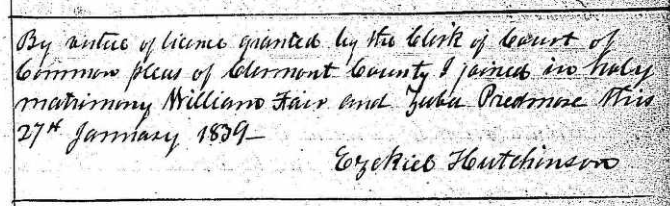 By virtue of licence granted by the Clerk of Court of
Common pleas of Clermont County I joined in holy
matrimony William Fair and Zuba Predmore this
27th January 1839
Ezekiel Hutchinson